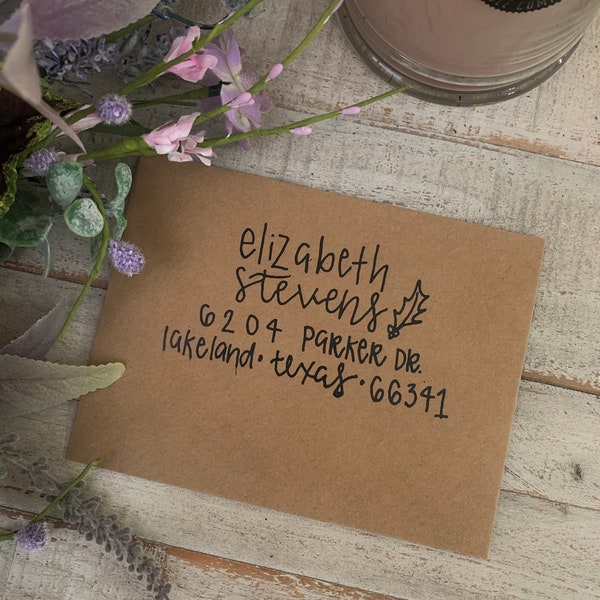 elizabeth
stevens
6204 PARKER DR.
lakeland · texas · 66341